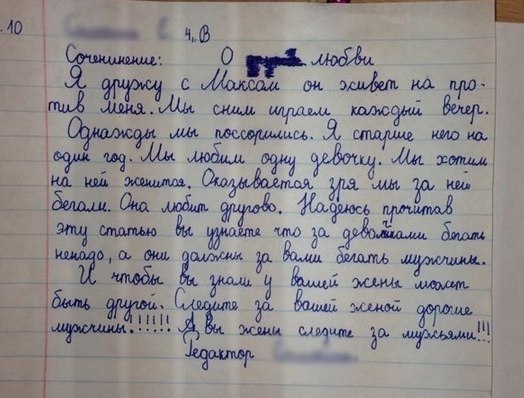 .10
4 „В
Сочинение: О любви
Я дружу с Максом он живет на про-
тив меня. Мы сним играем каждый вечер.
Однажды мы поссорились. Я старше него на
один год. Мы любим одну девочку. Мы хотим
на ней женится. Оказывается зря мы за ней
бегали. Она любит другово. Надеюсь прочитав
эту статью вы узнаете что за девочками бегать
ненадо, а они должны за вами бегать мужчины.
И чтобы вы знали у вашей жены может
быть другой. Следите за вашей женой дорогие
мужчины!!!!!! А вы жены следите за мужьями!!!
Редактор